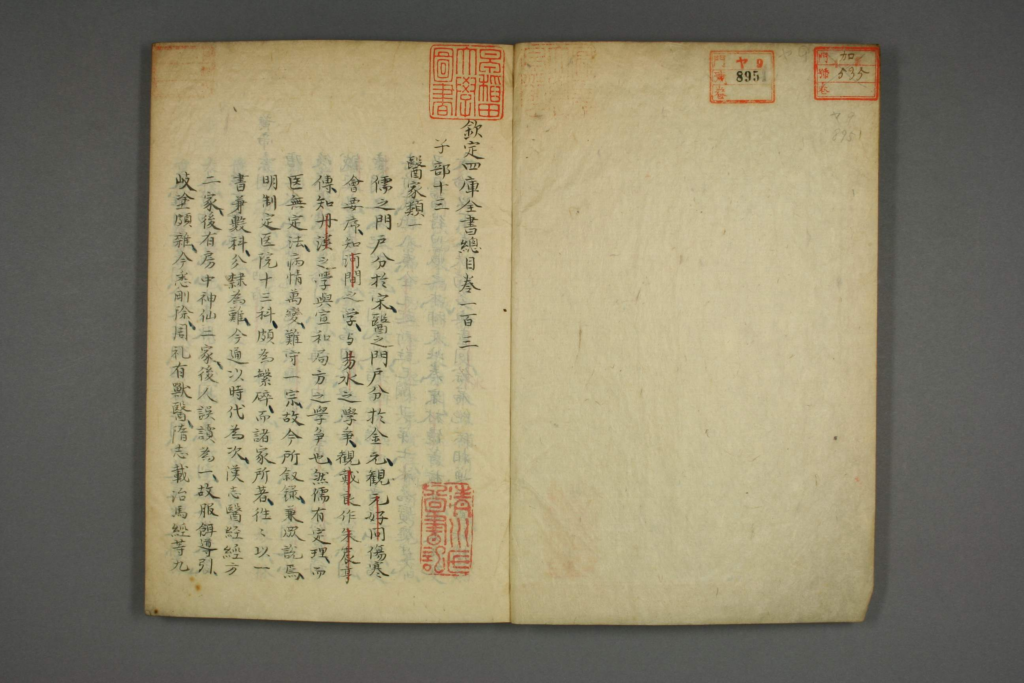 欽定四庫全書總目卷一百三
子部十三
醫家類一
儒之門戶分於宋、醫之門戶分於金元、觀元好問傷寒
會要序、知河間之学与易水之學争、觀戴良作朱震亨
傳、知丹溪之學與宣和局方之學争也、然儒有定理、而
医無定法、病情萬變、難守一宗、故今所叙録、兼衆説焉、
明制定医院十三科、頗為繁碎、而諸家所著、往〻以一
書兼數科、分隸為難、今通以時代為次、漢志醫經經方
二家、後有房中神仙二家、後人誤讀為一、故服餌導引、
歧塗頗雜、今悉刪除、周礼有獸醫、隋志載治馬經等九
早稻田大學圖書
門 ヤ9
號 895
卷
門 加
號 535
卷